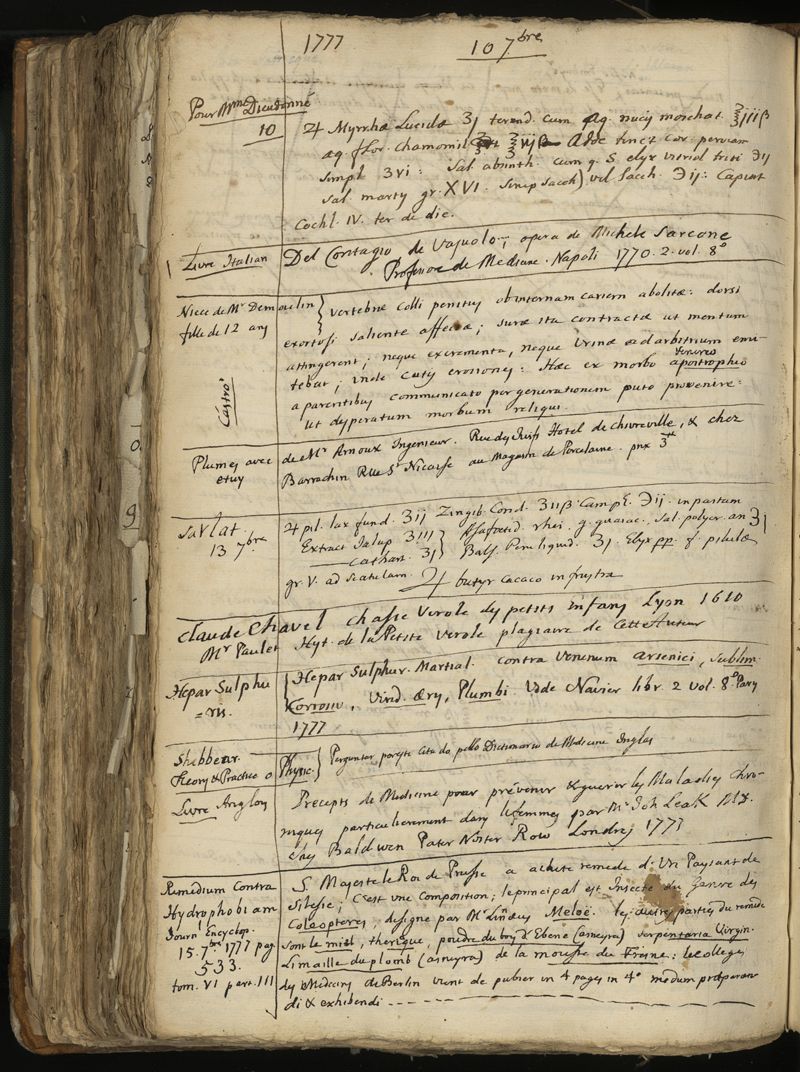 1777 10 7bre
Pour Mme Dieudonné
10
♃ Myrrhæ Lucidæ ʒj terend. cum aq. nucis moschat. ℥iijβ
aq. flor. chamomil. ℥iijβ Adde tinct. cor. peruvian
simpl ʒvi: Sal absinth. cum q. S. elyx vitriol triti ℈ij
Sal. marty gr. XVI. Sirup sacch) vel Sacch. ℈ij: Capiat
Cochl. IV. ter de die.
Livre Italian
Del Contagio de Vajuolo; opera de Michele Sarcone
Professore de Medicine. Napoli 1770. 2. vol. 8o
Niece de Mr Demoulin
fille de 12 any
Castro
vertebræ Colli penitus ob internam cariem abolitæ: dorsi
exortosi saliente affectæ; suræ ita contractæ ut mentum
attingerent; neque excrementa, neque Urina ad arbitrium emi-
tebat; inde Cuty erosiones: Hæc ex morbo
venereo
a parentibus communicato per generationem puto provenire:
ut desperatum morbum reliqui.
Plumes avec
etuy
de Mr Arnoux Ingenieur. Rue des Juifs Hotel de chivreville, & chez
Barrachin Rue St Nicaise au Magasin de Porcelaine. prix 3
Sarlat.
13 7bre
♃ pil. lax fund. ʒij Zingib. Cond. ʒijβ. Camph. ℈ij. in partam
Extract Jalap ʒiij
Cathart. ʒj
Assafoetid rhei. g. guaiac. Sal. polycr. an ʒj
Bals. Peru liquid. ʒj. Elyx pp. f. pilulæ
gr. V. ad Scatulam. ♃ butyr Cacaco in frustra
Claude Chavel chasse Verole des petits infans Lyon 1610
Mr Paulet Hyst. de la Petite Verole plagiaire de Cette Auteur
Hepar Sulphu
=ris.
Hepar Sulphur. Martial. contra Venenum arsenici, Sublim.
Corrosiv, Virid. Æry, Plumbi. Vide Navier libr. 2 vol. 8o Pary
1777
Shebbear.
Theory & Practice o Physic.
Perguntar
cita do pello Dictionario de Medicine Inglez
Livre Anglois
Precepts de Medicine pour prévenir & guerir les Maladies Chro-
niques particulierement dans les femmes par Mr Joh Leak MD.
chez Baldwen Pater Noster Row Londres 1773
Remedium Contra
Hydrophobiam
Journ Encyclop.
15. 7bre 1777 pag
533.
tom. VI part. III
S. Majeste le Roi de Prusse a acheté remede d'Un Paysant de
Silesie; C'est une Composition; le principal est Insecte du Genre des
Coleopteres, designe par Mr Linæus Meloë. les autres parties du remede
sont le miel, therique, poudre du boy d'Ebene (asneyra) serpentaria Virgin.
Limaille du plomb (asneyra) de la mousse du Fresne: le college
des Medecins de Berlin vient de publier un 4 pages in 4o modum præparan-
di & exhibendi